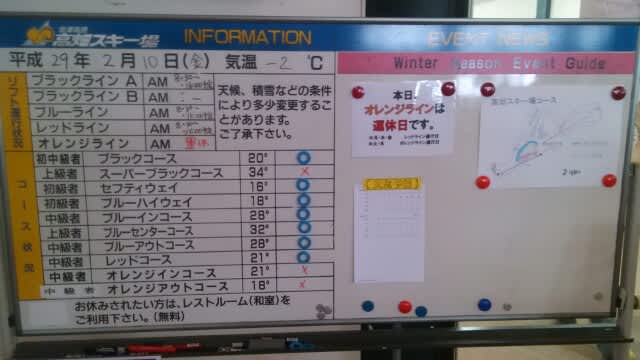 会津高原
高畑スキー場 INFORMATION
平成 29年 2月 10日(金) 気温 -2 ℃
リフト運行状況
ブラックライン A AM
ブラックライン B AM
ブルーライン AM
レッドライン AM
オレンジライン AM 運休
天候、積雪などの条件
により多少変更するこ
とがあります。
ご了承下さい。
コース状況
初中級者 ブラックコース 20° ○
上級者 スーパーブラックコース 34° ×
初級者 セフティウェイ 16° ○
初級者 ブルーハイウェイ 18° ○
中級者 ブルーインコース 28° ○
上級者 ブルーセンターコース 32° ○
中級者 ブルーアウトコース 28° ○
中級者 レッドコース 21° ○
中級者 オレンジインコース 21° ×
中級者 オレンジアウトコース 18° ×
お休みされたい方は、レストルーム(和室)を
ご利用下さい。(無料)
EVENT NEWS
Winter Season Event Guide
本日、
オレンジラインは
運休日です。
高畑スキー場コース